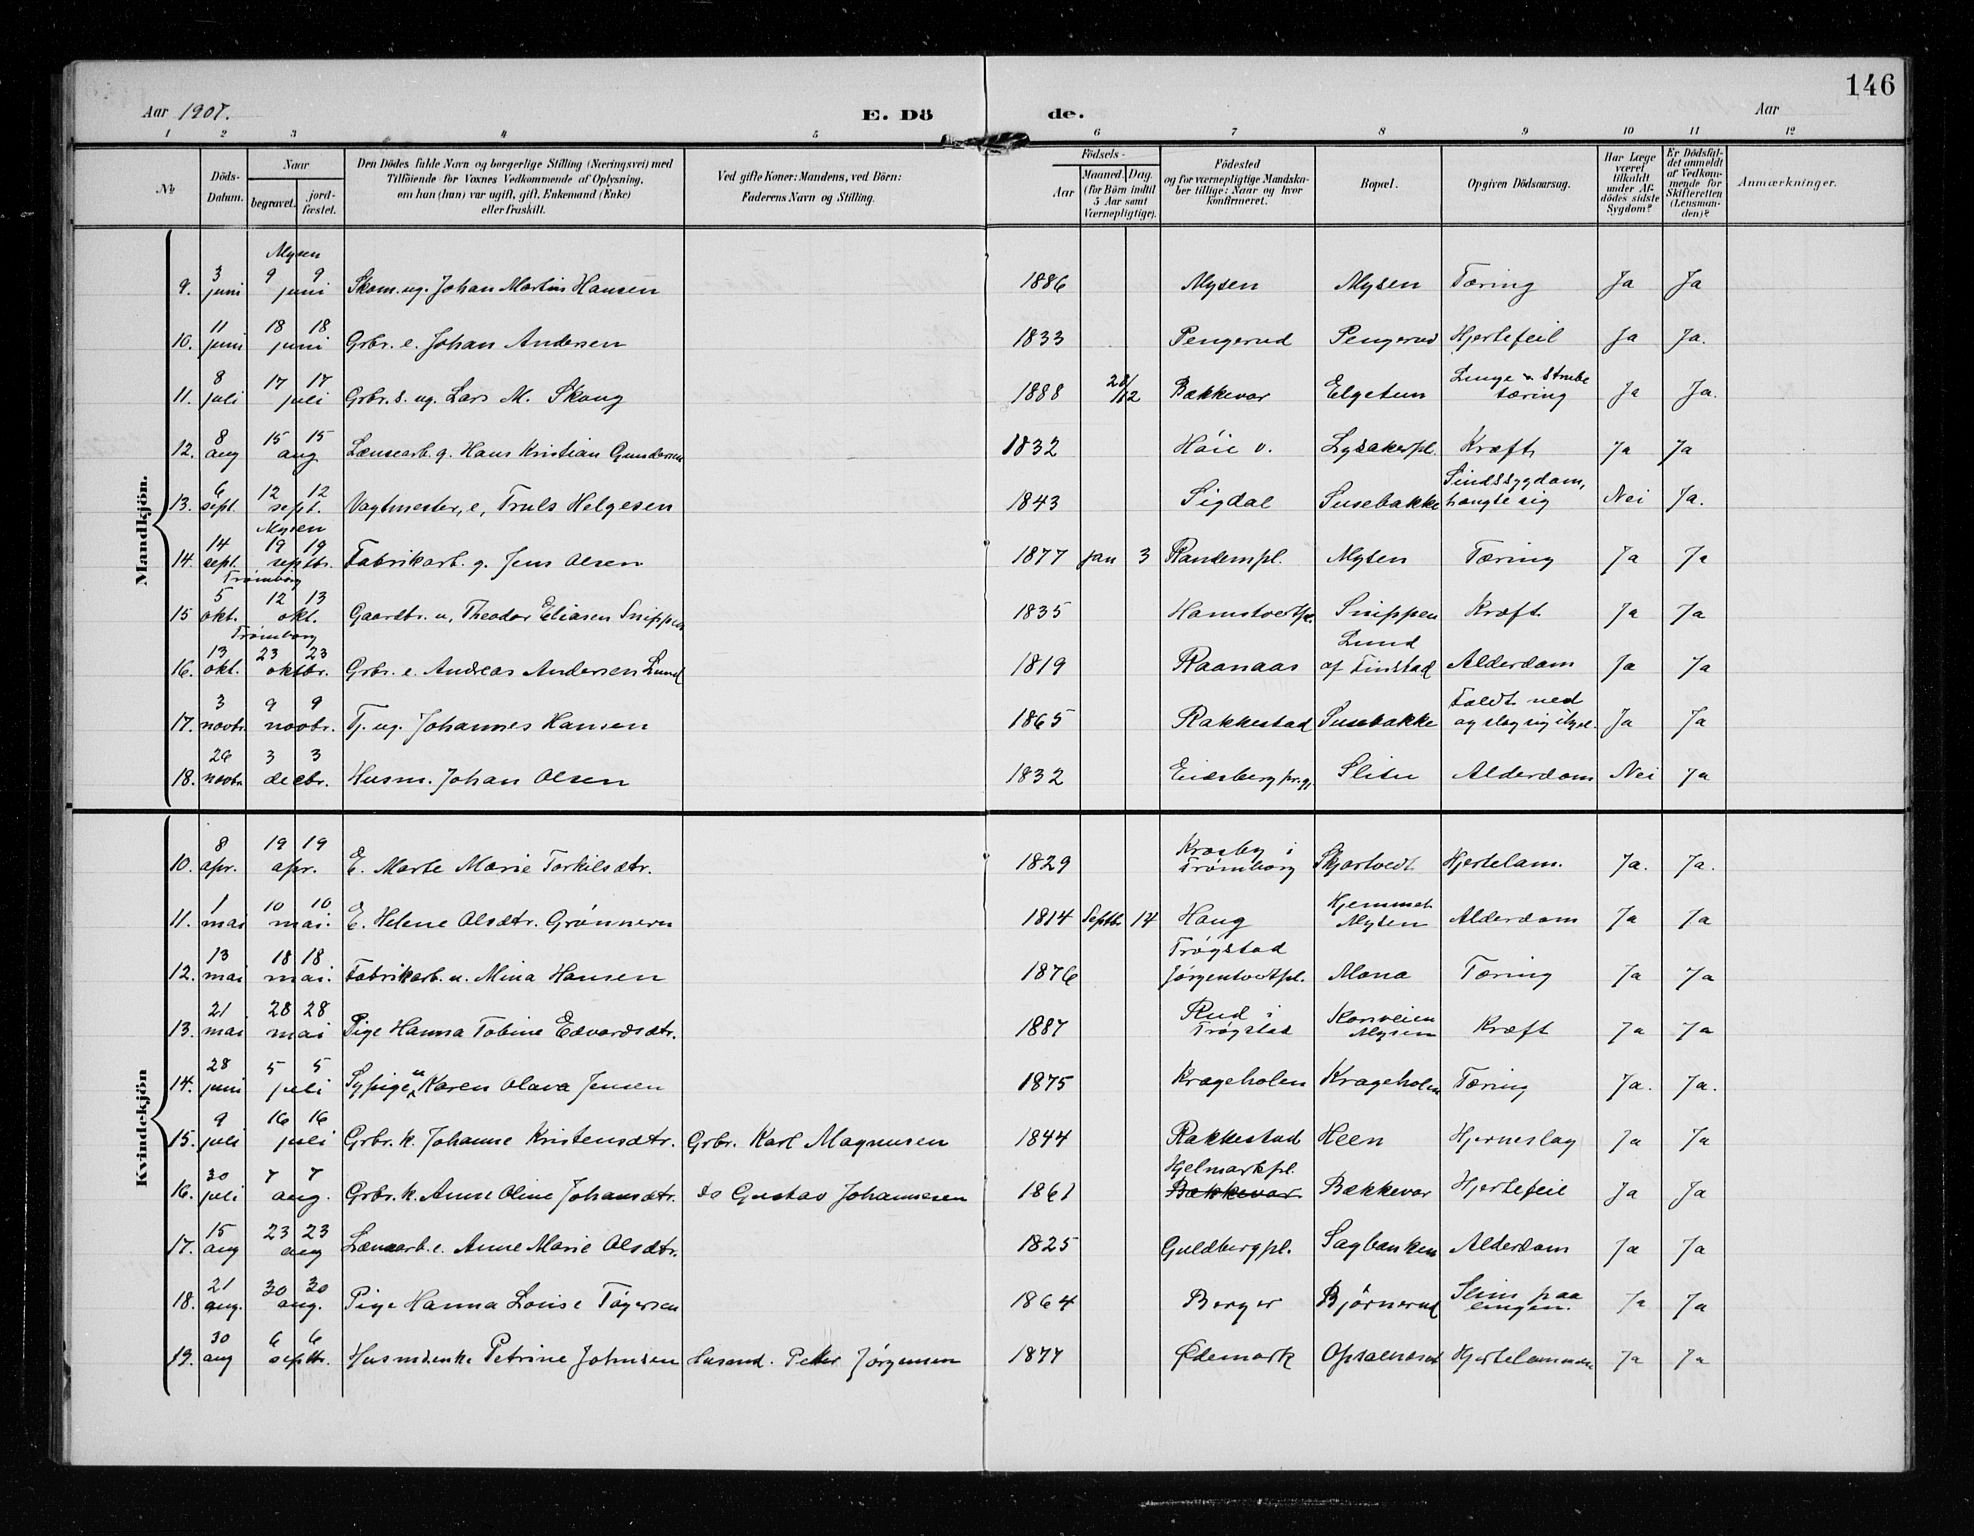 146
Aar 1907. E. Dö de. Aar
1 2 3 4 5 6 7 8 9 10 11 12
No Döds-Datum. Naar begravet. jordfæstet. Den Dödes fulde Navn og borgerlige Stilling (Næringsvei) med Tilföiende for Voxnes Vedkommende af Oplysning, om han (hun) var ugift, gift, Enkemand (Enke) eller fraskilt. Ved gifte Koner: Mandens, ved Börn: Faderens Navn og Stilling. Födsels- Aar Maaned. Dag. (for Börn indtil 5 Aar samt Værnepligtige). Födested og for værnepligtige Mandskaber tillige: Naar og hvor konfirmeret. Bopæl. Opgiven Dödsaarsag. Har Læge været tilkaldt under Afdödes sidste Sygdom? Er Dödsfaldet anmeldt af Vedkommende for Skifteretten (Lensmanden)? Anmærkninger.
Mandkjön.
Mysen
9. 3 juni 9 9 juni Skom. ug. Johan Martin Hansen 1886 Mysen Mysen Tæring Ja Ja
10. 11 juni 18 18 juni Grbr. e. Johan Andersen 1833 Pengerud Pengerud Hjertefeil Ja Ja.
11. 8 juli 17 17 juli Grbr. s. ug. Lars M. Skoug 1888 28/12 Bækkevar Elgetun Lunge & Strube tæring Ja Ja.
12. 8 aug 15 15 aug Lænsearb. g. Hans Kristian Gundersen 1832 Höie v. Lysakerpl. Kræft Ja Ja
13. 6 sept. 12 12 sept. Vagtmester, e, Truls Helgesen 1843 Sigdal Susebakke Sindssygdom, hængte sig Nei Ja.
Mysen
14. 14 sept. 19 19 septbr. Fabrikarb. g. Jens Olsen 1877 jan 3 Randempl. Mysen Tæring Ja Ja
Trömborg
15 5 okt. 12 13 okt. Gaardbr. u, Theodor Eliasen Snippen 1835 Hamstvedtpl. Snippen Kræft Ja Ja
Trömborg
16. 13 okt. 23 23 oktbr. Grbr. e. Andreas Andersen Lund 1819 Raanaas Lund af Finstad Alderdom Ja Ja
17. 3 novbr. 9 9 novbr. Tj. ug. Johannes Hansen 1865 Rakkestad Susebakke Faldt ned og slog sig ihjel. Ja Ja
18. 26 novbr 3 3 decbr. Husm. Johan Olsen 1832 Eidsberg prg. Slitu Alderdom Nei Ja
Kvindekjön
10. 8 apr. 19 19 apr. E. Marte Marie Torkilsdtr. 1829 Krosby i Trömborg Skjortvedt Hjertelam. Ja. Ja.
11. 1 mai 10 10 mai. E. Helene Olsdtr. Grönnern 1814 Septb. 14 Haug Hjemmet Mysen Alderdom Ja Ja
12. 13 mai 18 18 mai. Fabrikarb. u. Mina Hansen 1876 Trøgstad Jørgentvedtpl. Mona Tæring Ja Ja
13. 21 mai 28 28 mai Pige Hanna Tobine Edvardsdtr. 1887 Rud i Trøgstad Korsveien Mysen Kræft Ja Ja
14. 28 juni 5 5 juli Sypige u Karen Olava Jensen 1875 Krageholen Krageholen Tæring Ja. Ja.
15. 9 juli 16 16 juli Grbr. k. Johanne Kristensdtr. Grbr. Karl Magnusen 1844 Rakkestad Heen Hjerneslag Ja Ja
16. 30 juli 7 7 aug. Grbr. k. Anne Oline Johansdtr. do Gustav Johannesen 1861 Hjelmarkpl. Bækkevar Bækkevar Hjertefeil Ja Ja
17. 15 aug 23 23 aug Lænsearb. e. Anne Marie Olsdtr. 1825 Guldbergpl. Sagbanken Alderdom Ja Ja
18. 21 aug. 30 30 aug. Pige Hanna Louise Tøgersen 1864 Berger Bjørnerud Slim paa lungen. Ja Ja
19. 30 aug 6 6 septbr. Husmdenke Petrine Johnsen Husmd. Peter Jørgensen 1877 Ødemark Hjertelammelse Ja Ja